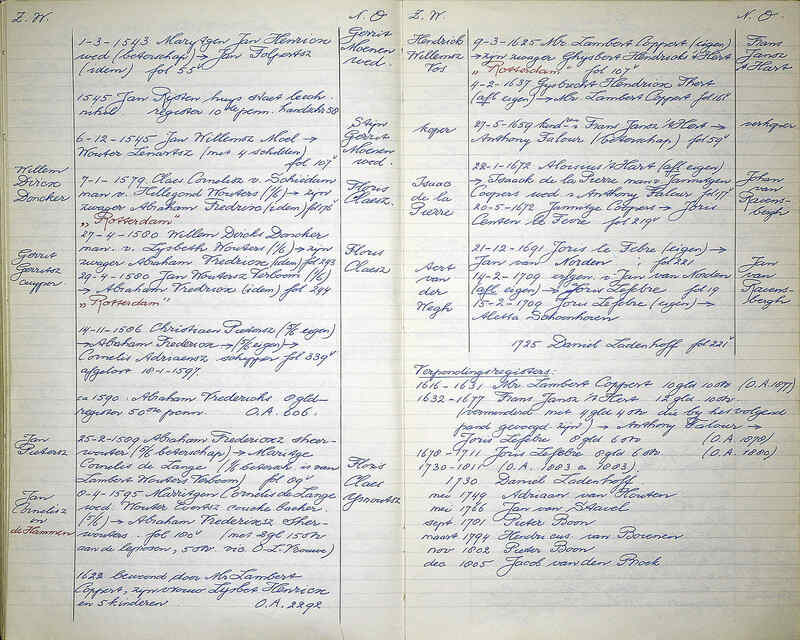 Z. W.
N. O.
1-3-1543 Marytgen Jan Henricx
wed (beterschap) → Jan
(idem) fol 55
Gerrit
Moenen
wed.
1545 Jan huys staet leech
register 10de penn.
6-12-1545 Jan Willemsz Moel →
Wouter Lenartsz (met 4 schilden)
fol 107v
Stijn
Gerrit
Moenen
wed.
Willem
Dircx
Doncker
7-1-1579 Claes Cornelisz v. Schiedam
man v. Hillegond Wouters → zijn
zwager Abraham Fredricx (idem)
„Rotterdam"
Floris
Claesz.
27-4-1580 Willem Dircks Doncker
man v. Lysbeth Wouters → zijn
zwager Abraham Vredricx (idem) fol 293
Gerrit
Gerritsz
cuyper
29-4-1580 Jan Woutersz Terboom
→ Abraham Vredricx (idem) fol 294
„Rotterdam"
Floris
Claesz
14-11-1586 Christiaen Pietersz
→ Abraham Fredericx →
Cornelis Adriaensz schipper fol 339v
afgelost 18-1-1597.
ca 1590. Abraham Vredericks 8 gld-
register 50ste penn. O.A. 606.
Jan
Pietersz
25-2-1589 Abraham Fredericxz scheer-
wouter beterschap) → Maritge
Cornelis de Lange
Lambert Wouters Terboom) fol 89v
Floris
Claes
Jan
Cornelisz
in
de Hammen
8-4-1595 Marritgen Cornelis de Lange
wed. Wouter Evertsz backer.
→ Abraham Vredericxsz
fol 100v (met
aan de leprosen, O-L-Vrouwe)
1622 bewoond door Mr Lambert
Coppert, zijn vrouw Lysbet Henricx
en 5 kinderen O.A. 2292
Z. W.
N. O.
Hendrick
Willemsz
Vos
9-3-1625 Mr. Lambert Coppert (eigen)
→ zijn zwager Ghysbert Hendricks 't Hart
„Rotterdam" fol 107v
Frans
Jansz
't Hart
4-2-1637 Gysbrecht Hendricx
(afl. eigen) → Mr. Lambert Coppert fol 16v
koper
27-5-1659 Frans Jansz 't Hert →
Anthony Valour (beterschap) fol 59v
verkoper
Isaac
de la
Pierre
28-1-1672 Aloisius 't Hart (afl. eigen)
→ Isaack de la Pierre man v. Jannitgen
Coopers wed. v. Anthony Valeur fol 17v
20-5-1672 Jannitge Coopers → Joris
le Fevre fol 219v
Johan
van
Ravens-
bergh
Aert
van
der
Wegh
21-12-1691 Joris le Febre (eigen) →
Jan van Norden fol 221
14-2-1709 erfgen. v. Jan van Norden
(afl. eigen) → Joris Lefebre fol 19
15-2-1709 Joris Lefebre (eigen) →
Aletta Schoonhoven
Jan
van
Ravens-
bergh
1725 Daniel Ladenhoff fol 221v
Verpondingsregisters:
1616-1631 Mr. Lambert Coppert 10 gld 10 st (O.A. 1877)
1632-1677 Frans Jansz 't Hert 12 gld 10 st
(verminderd met 4 gld 4 st die by het volgend
pand gevoegd zijn) → Anthony Valour →
Joris Lefebre 8 gld 6 st (O.A. 1879)
1678-1711 Joris Lefebre 8 gld 6 st (O.A. 1880)
1730-1811 (O.A. 1883 e 1883).
1730 Daniel Ladenhoff
mei 1749 Adriaan van Houten
mei 1766 Jan van Stavel
sept 1781 Pieter Boon
maart 1794 Hendricus van Boienen
nov 1802 Pieter Boon
dec 1805 Jacob van den Broek